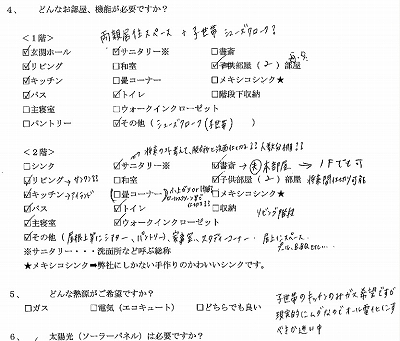 4、 どんなお部屋、機能が必要ですか？
両親居住スペース + 子世帯 シューズクローク？
＜1階＞
☑玄関ホール ☑サニタリー※ □書斎
☑リビング □和室 ☑子供部屋（2）部屋
☑キッチン □畳コーナー □メキシコシンク★
☑バス ☑トイレ □階段下収納
□主寝室 □ウォークインクローゼット
□パントリー ☑その他（シューズクローク（子世帯））
＜2階＞
□シンク ☑サニタリー※ ☑書斎→ 本部屋 → 1Fでも可
☑リビング→ □和室 ☑子供部屋（2）部屋 将来間仕切り可能
☑キッチン→アイランド □畳コーナー □メキシコシンク★
☑バス ☑トイレ □収納 リビング階段
☑主寝室 ☑ウォークインクローゼット
☑その他（屋根上等にシアター、パントリー、家事室、スタディーコーナー 屋上にスペース
※サニタリー・・・洗面所など呼ぶ総称
★メキシコシンク➡弊社にしかない手作りのかわいいシンクです。
5、 どんな熱源がご希望ですか？
□ガス □電気（エコキュート） □どちらでも良い
子世帯のキッチンのみガス希望ですが
現実的にムダなのでオール電化にす
べきか迷い中
6、 太陽光（ソーラーパネル）は必要ですか？